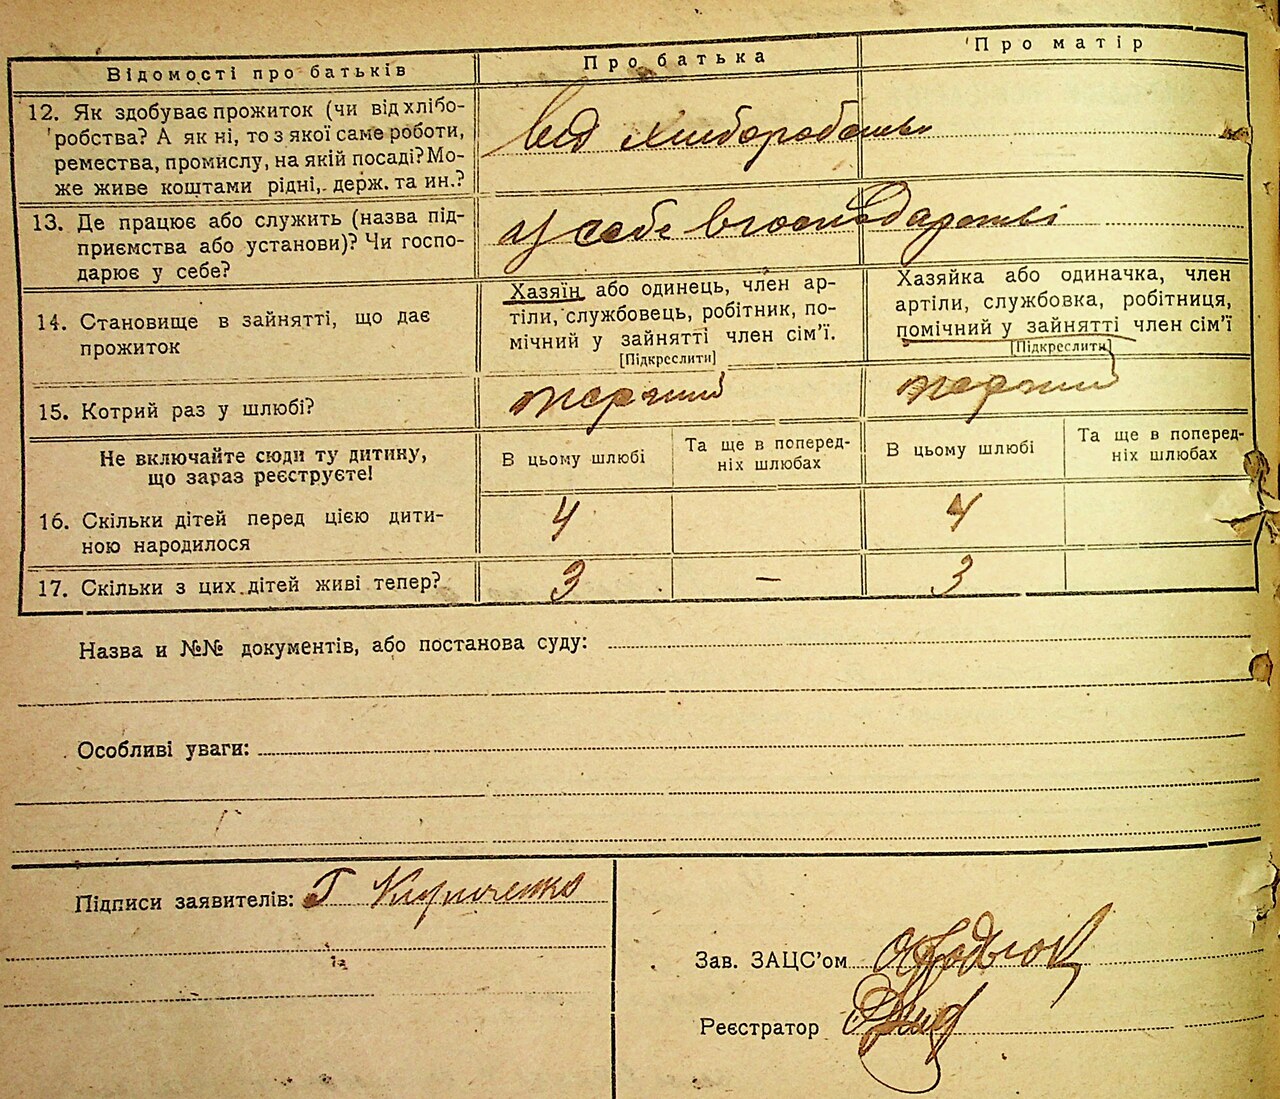 Відомості про батьків
Про батька
Про матір
12. Як здобуває прожиток (чи від хлібо-
робства? А як ні, то з якої саме роботи,
ремества, промислу, на якій посаді? Мо-
же живе коштами рідні, держ. та ин.?
від хліборобства
13. Де працює або служить (назва під-
приємства або установи)? Чи госпо-
дарює у себе?
у себе в господарстві
14. Становище в зайнятті, що дає
прожиток
Хазяїн або одинець, член ар-
тіли, службовець, робітник, по-
мічний у зайнятті член сім'ї.
[Підкреслити]
Хазяйка або одиначка, член
артіли, службовка, робітниця,
помічний у зайнятті член сім'ї
[Підкреслити]
15. Котрий раз у шлюбі?
перший
перший
Не включайте сюди ту дитину,
що зараз реєструєте!
В цьому шлюбі
Та ще в поперед-
ніх шлюбах
В цьому шлюбі
Та ще в поперед-
ніх шлюбах
16. Скільки дітей перед цією дити-
ною народилося
4
4
17. Скільки з цих дітей живі тепер?
3
–
3
Назва и №№ документів, або постанова суду:
Особливі уваги:
Підписи заявителів: Г Кириченко
Зав. ЗАЦС'ом
Реєстратор